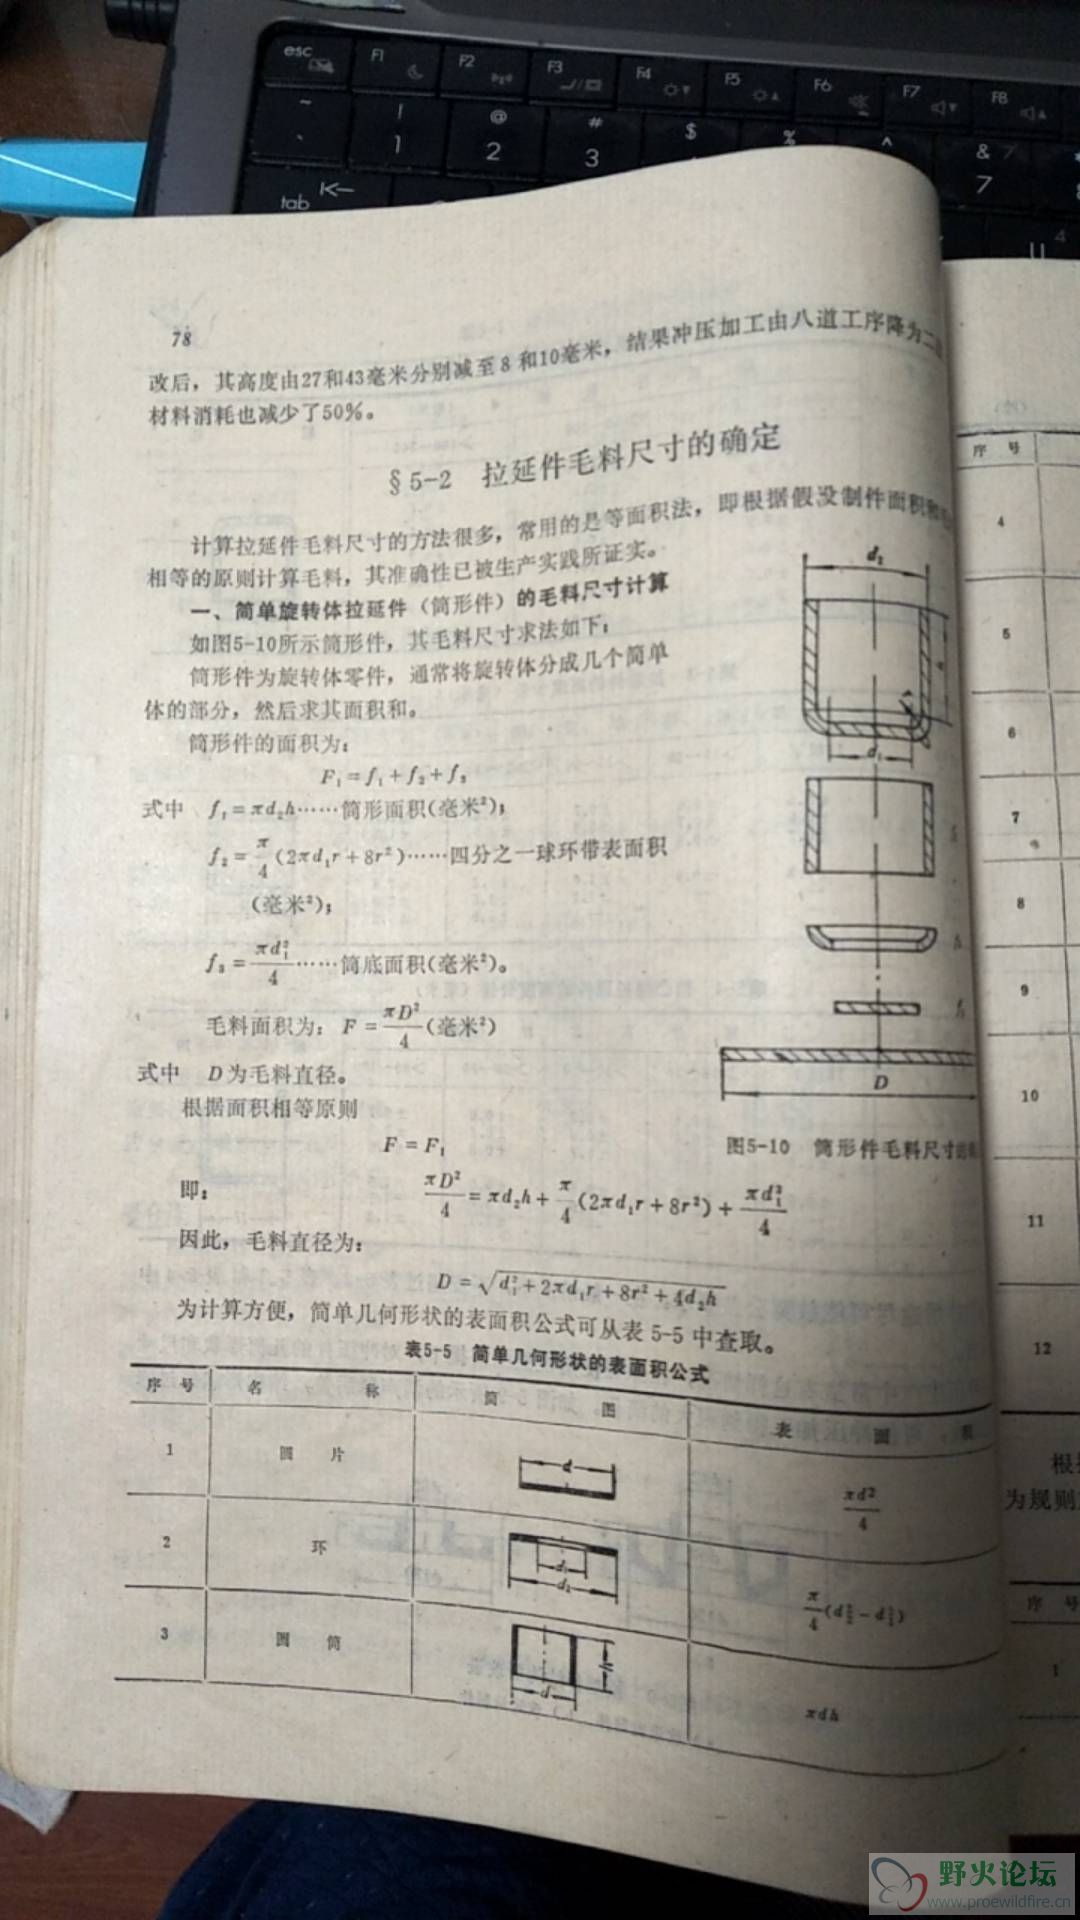 esc F1 F2 F3 F4 F5 F6 F7 F8
~ ! @ # $ % ^ & 7
` 1 2 3 7
tab U 4
78
改后，其高度由27和43毫米分别减至8和10毫米，结果冲压加工由八道工序降为二
材料消耗也减少了50%。
§5-2 拉延件毛料尺寸的确定
计算拉延件毛料尺寸的方法很多，常用的是等面积法，即根据假没制件面积和
相等的原则计算毛料，其准确性已被生产实践所证实。
一、简单旋转体拉延件（筒形件）的毛料尺寸计算
如图5-10所示筒形件，其毛料尺寸求法如下：
筒形件为旋转体零件，通常将旋转体分成几个简单
体的部分，然后求其面积和。
筒形件的面积为：
F₁=f₁+f₂+f₃
式中 f₁=πd₂h……筒形面积(毫米²)；
f₂=π/4(2πd₁r+8r²)……四分之一球环带表面积
(毫米²)；
f₃=πd₁²/4……筒底面积(毫米²)。
毛料面积为：F=πD²/4(毫米²)
式中 D为毛料直径。
根据面积相等原则
F=F₁
即：
πD²/4=πd₂h+π/4(2πd₁r+8r²)+πd₁²/4
因此，毛料直径为：
D=√d₁²+2πd₁r+8r²+4d₂h
为计算方便，简单几何形状的表面积公式可从表5-5中查取。
d₂
d₁
D
图5-10 筒形件毛料尺寸的
表5-5 简单几何形状的表面积公式
序号 名称 简图 表面积
1 圆片 d πd²/4
2 环 d₁ d₂ π/4(d₂²-d₁²)
3 圆筒 d h πdh
序号
4
5
6
7
8
9
10
11
12
根
为规则
序号
1
野火论坛
www.proewildfire.cn